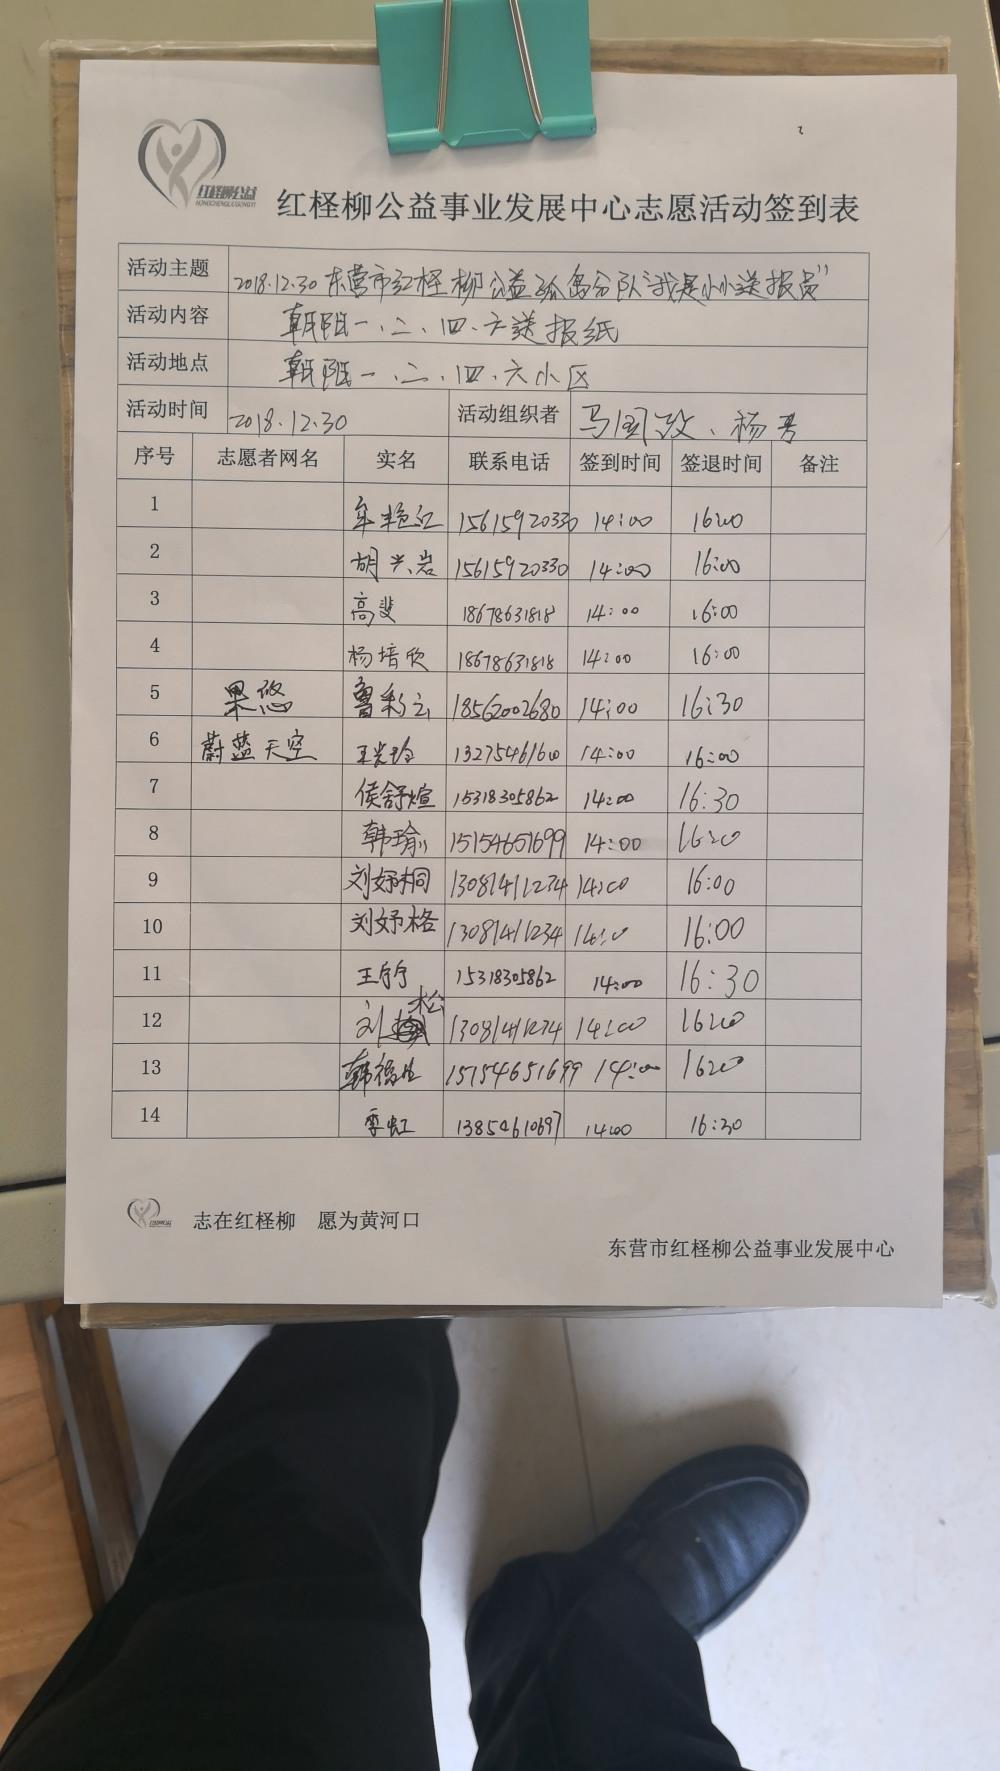 红柽柳公益
HONGCHENGLIUGONGYI
红柽柳公益事业发展中心志愿活动签到表
活动主题 2018.12.30 东营市红柽柳公益孤岛分队“我是小小送报员”
活动内容 朝阳一、二、四、六送报纸
活动地点 朝阳一、二、四、六小区
活动时间 2018.12.30 活动组织者 马国政、杨芳
序号 志愿者网名 实名 联系电话 签到时间 签退时间 备注
1 牟艳红 15615920330 14:00 16:00
2 胡兴岩 15615920330 14:00 16:00
3 高斐 18678631818 14:00 16:00
4 杨培欣 18678631818 14:00 16:00
5 果悠 鲁彩云 18562002680 14:00 16:30
6 蔚蓝天空 13275461600 14:00 16:00
7 侯舒煊 15318305862 14:00 16:30
8 韩瑜 15154651699 14:00 16:20
9 刘妤桐 13081411234 14:00 16:00
10 刘妤格 13081411234 14:00 16:00
11 王宁宁 15318305862 14:00 16:30
12 刘松 13081411234 14:00 16:00
13 韩福生 15154651699 14:00 16:20
14 季虹 13854610697 14:00 16:30
志在红柽柳 愿为黄河口
东营市红柽柳公益事业发展中心